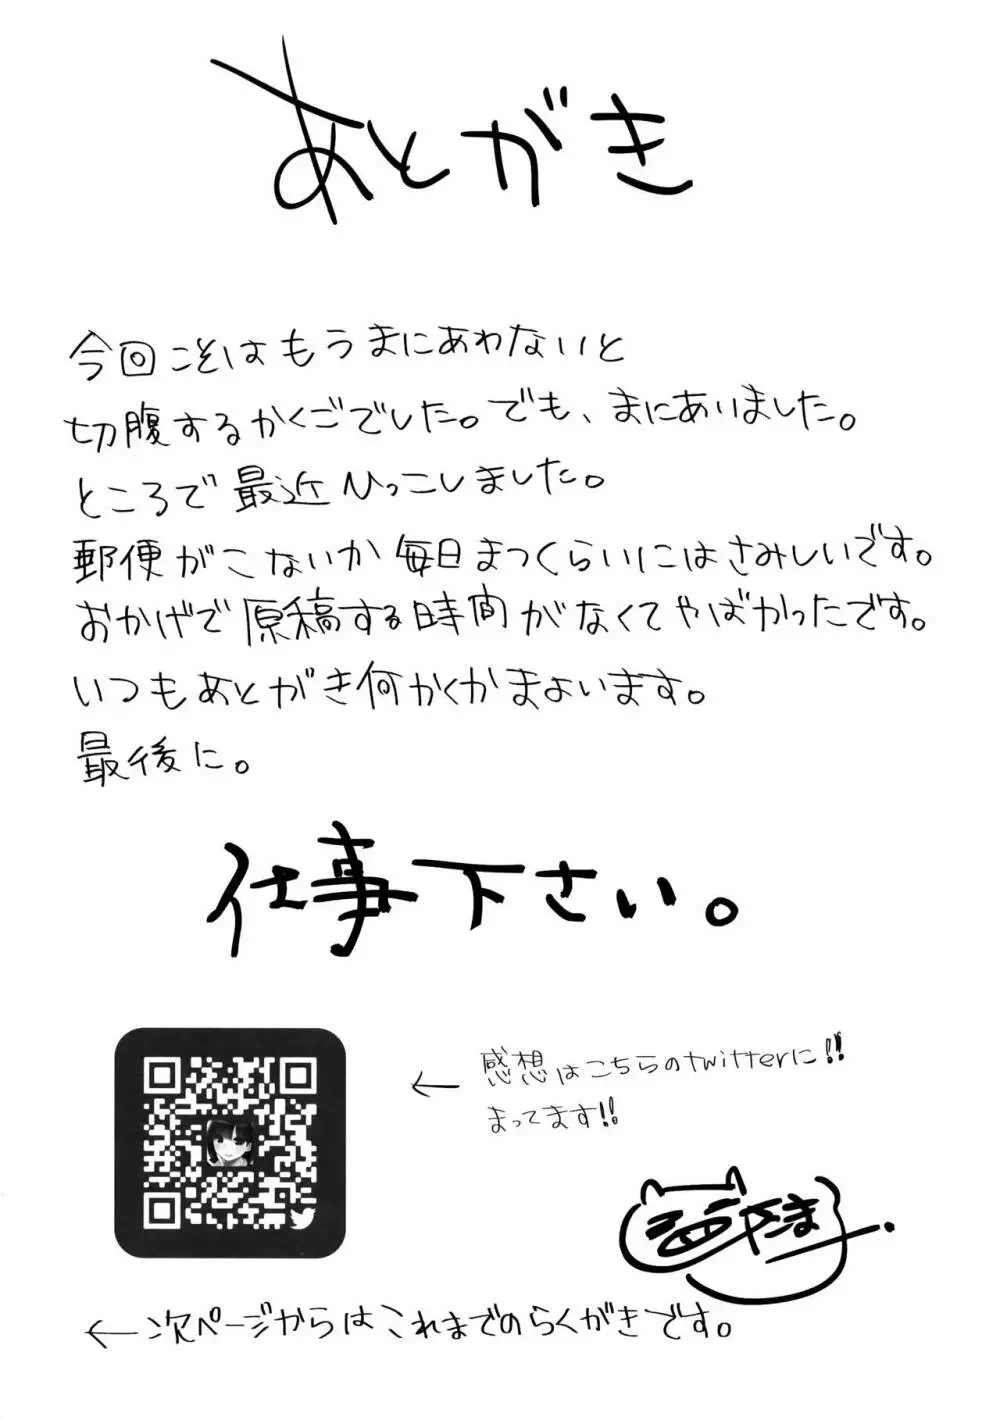 あとがき
今回こそはもうまにあわないと
切腹するかくごでした。でも、まにあいました。
ところで最近ひっこしました。
郵便がこないか毎日まつくらいにはさみしいです。
おかげで原稿する時間がなくてやばかったです。
いつもあとがき何かくかまよいます。
最後に。
仕事下さい。
← 感想はこちらのtwitterに!!
まってます!!
← 次ページからはこれまでのらくがきです。